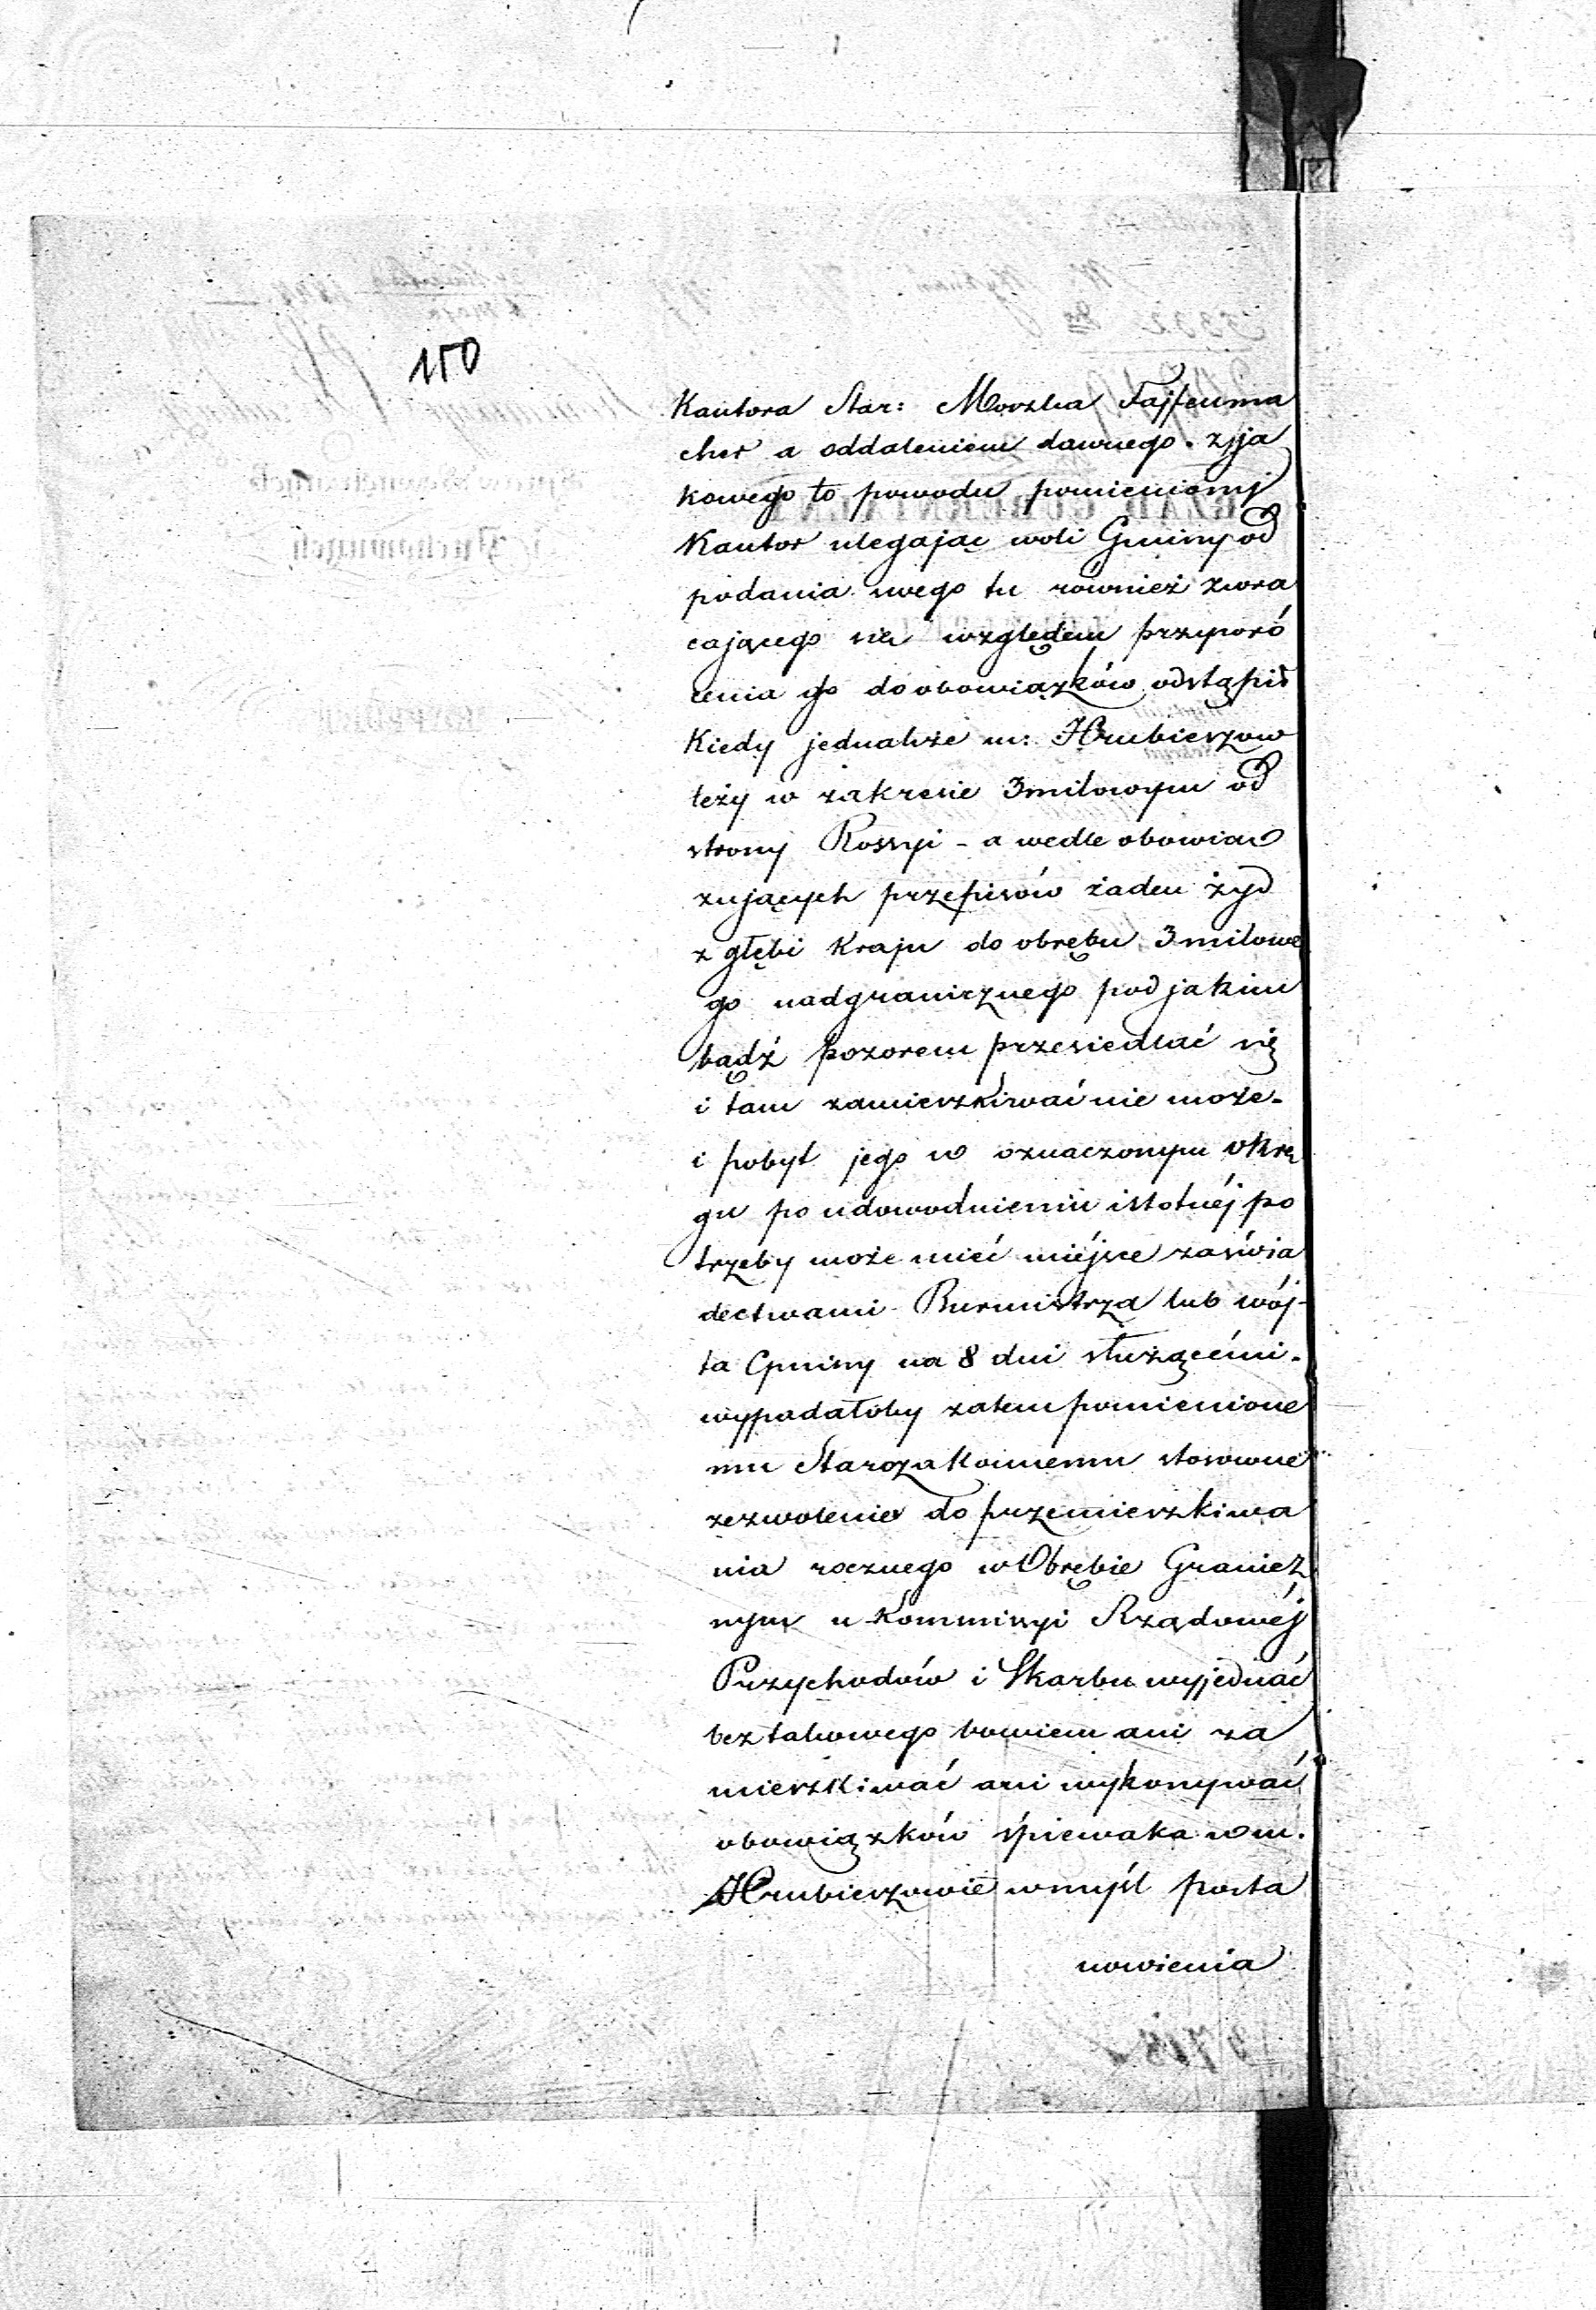 150
Kantora Star: Moszka Fajfeuma
cher a oddaleniem dawnego. z ja
kowego to powodu pomieniony
Kantor ulegając woli Gminy od
podania swego tu również zwra
cającego się względem przywró
cenia go do obowiązków odstąpił
Kiedy jednakże m: Hrubieszow
leży w zakresie 3milowym od
strony Rossyi - a wedle obowią
zujących przepisów żaden żyd
z głębi Kraju do obrębu 3milowe
go nadgranicznego pod jakim
bądź pozorem przesiedlać się
i tam zamieszkiwać nie może -
i pobyt jego w oznaczonym okrę
gu po udowodnieniu istotnéj po
trzeby może mieć miéjsce zaświa
dectwami Burmistrza lub wój-
ta Gminy na 8 dni służącémi.
wypadałoby zatem pomienione
mu Starozakonnemu stosowne
zezwolenie do przemieszkiwa
nia rocznego w Obrębie Granicz
nym u Kommissyi Rządowéj
Przychodów i Skarbu wyjednać
bez takowego bowiem ani za
mieszkiwać ani wykonywać
obowiązków śpiewaka w m.
Hrubieszowie w myśl posta
nowienia